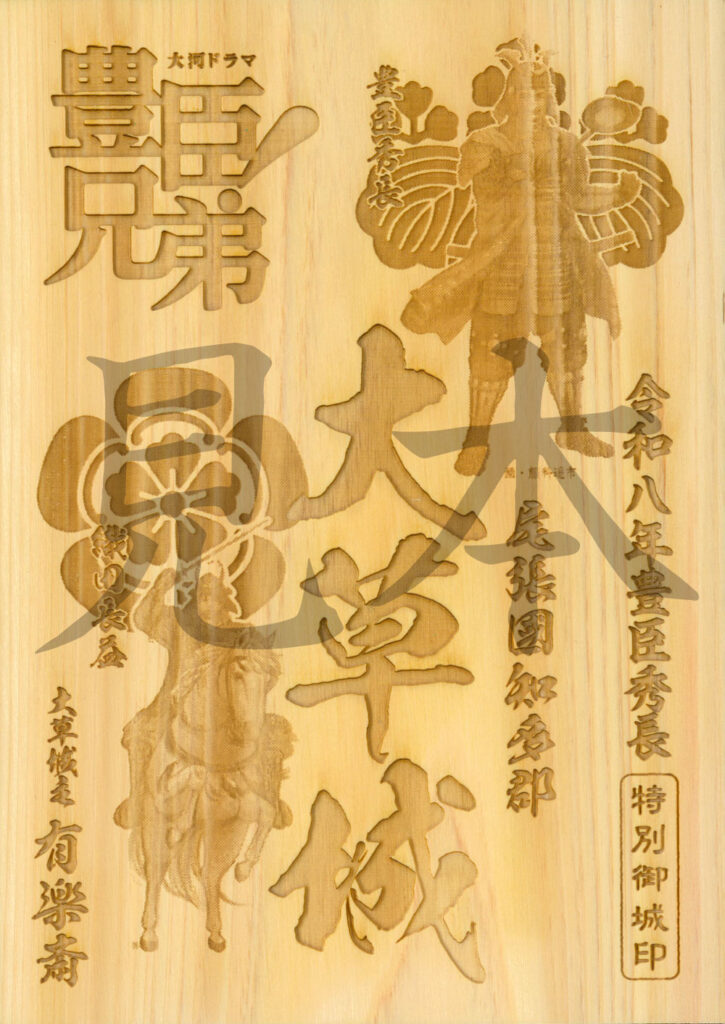 大河ドラマ
豊臣兄弟!
豊臣秀長
令和八年豊臣秀長
特別御城印
尾張國知多郡
大草城
織田長益
大草城主 有楽斎
見本